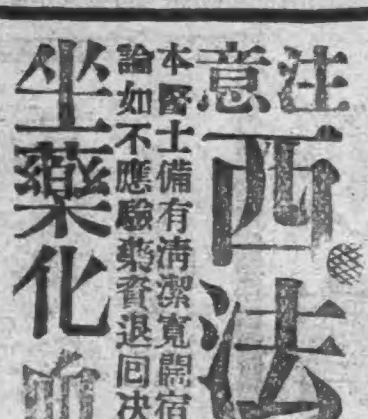 注意
西法
本醫士備有清潔寬闊宿
論如不應驗藥資退回决
坐藥化